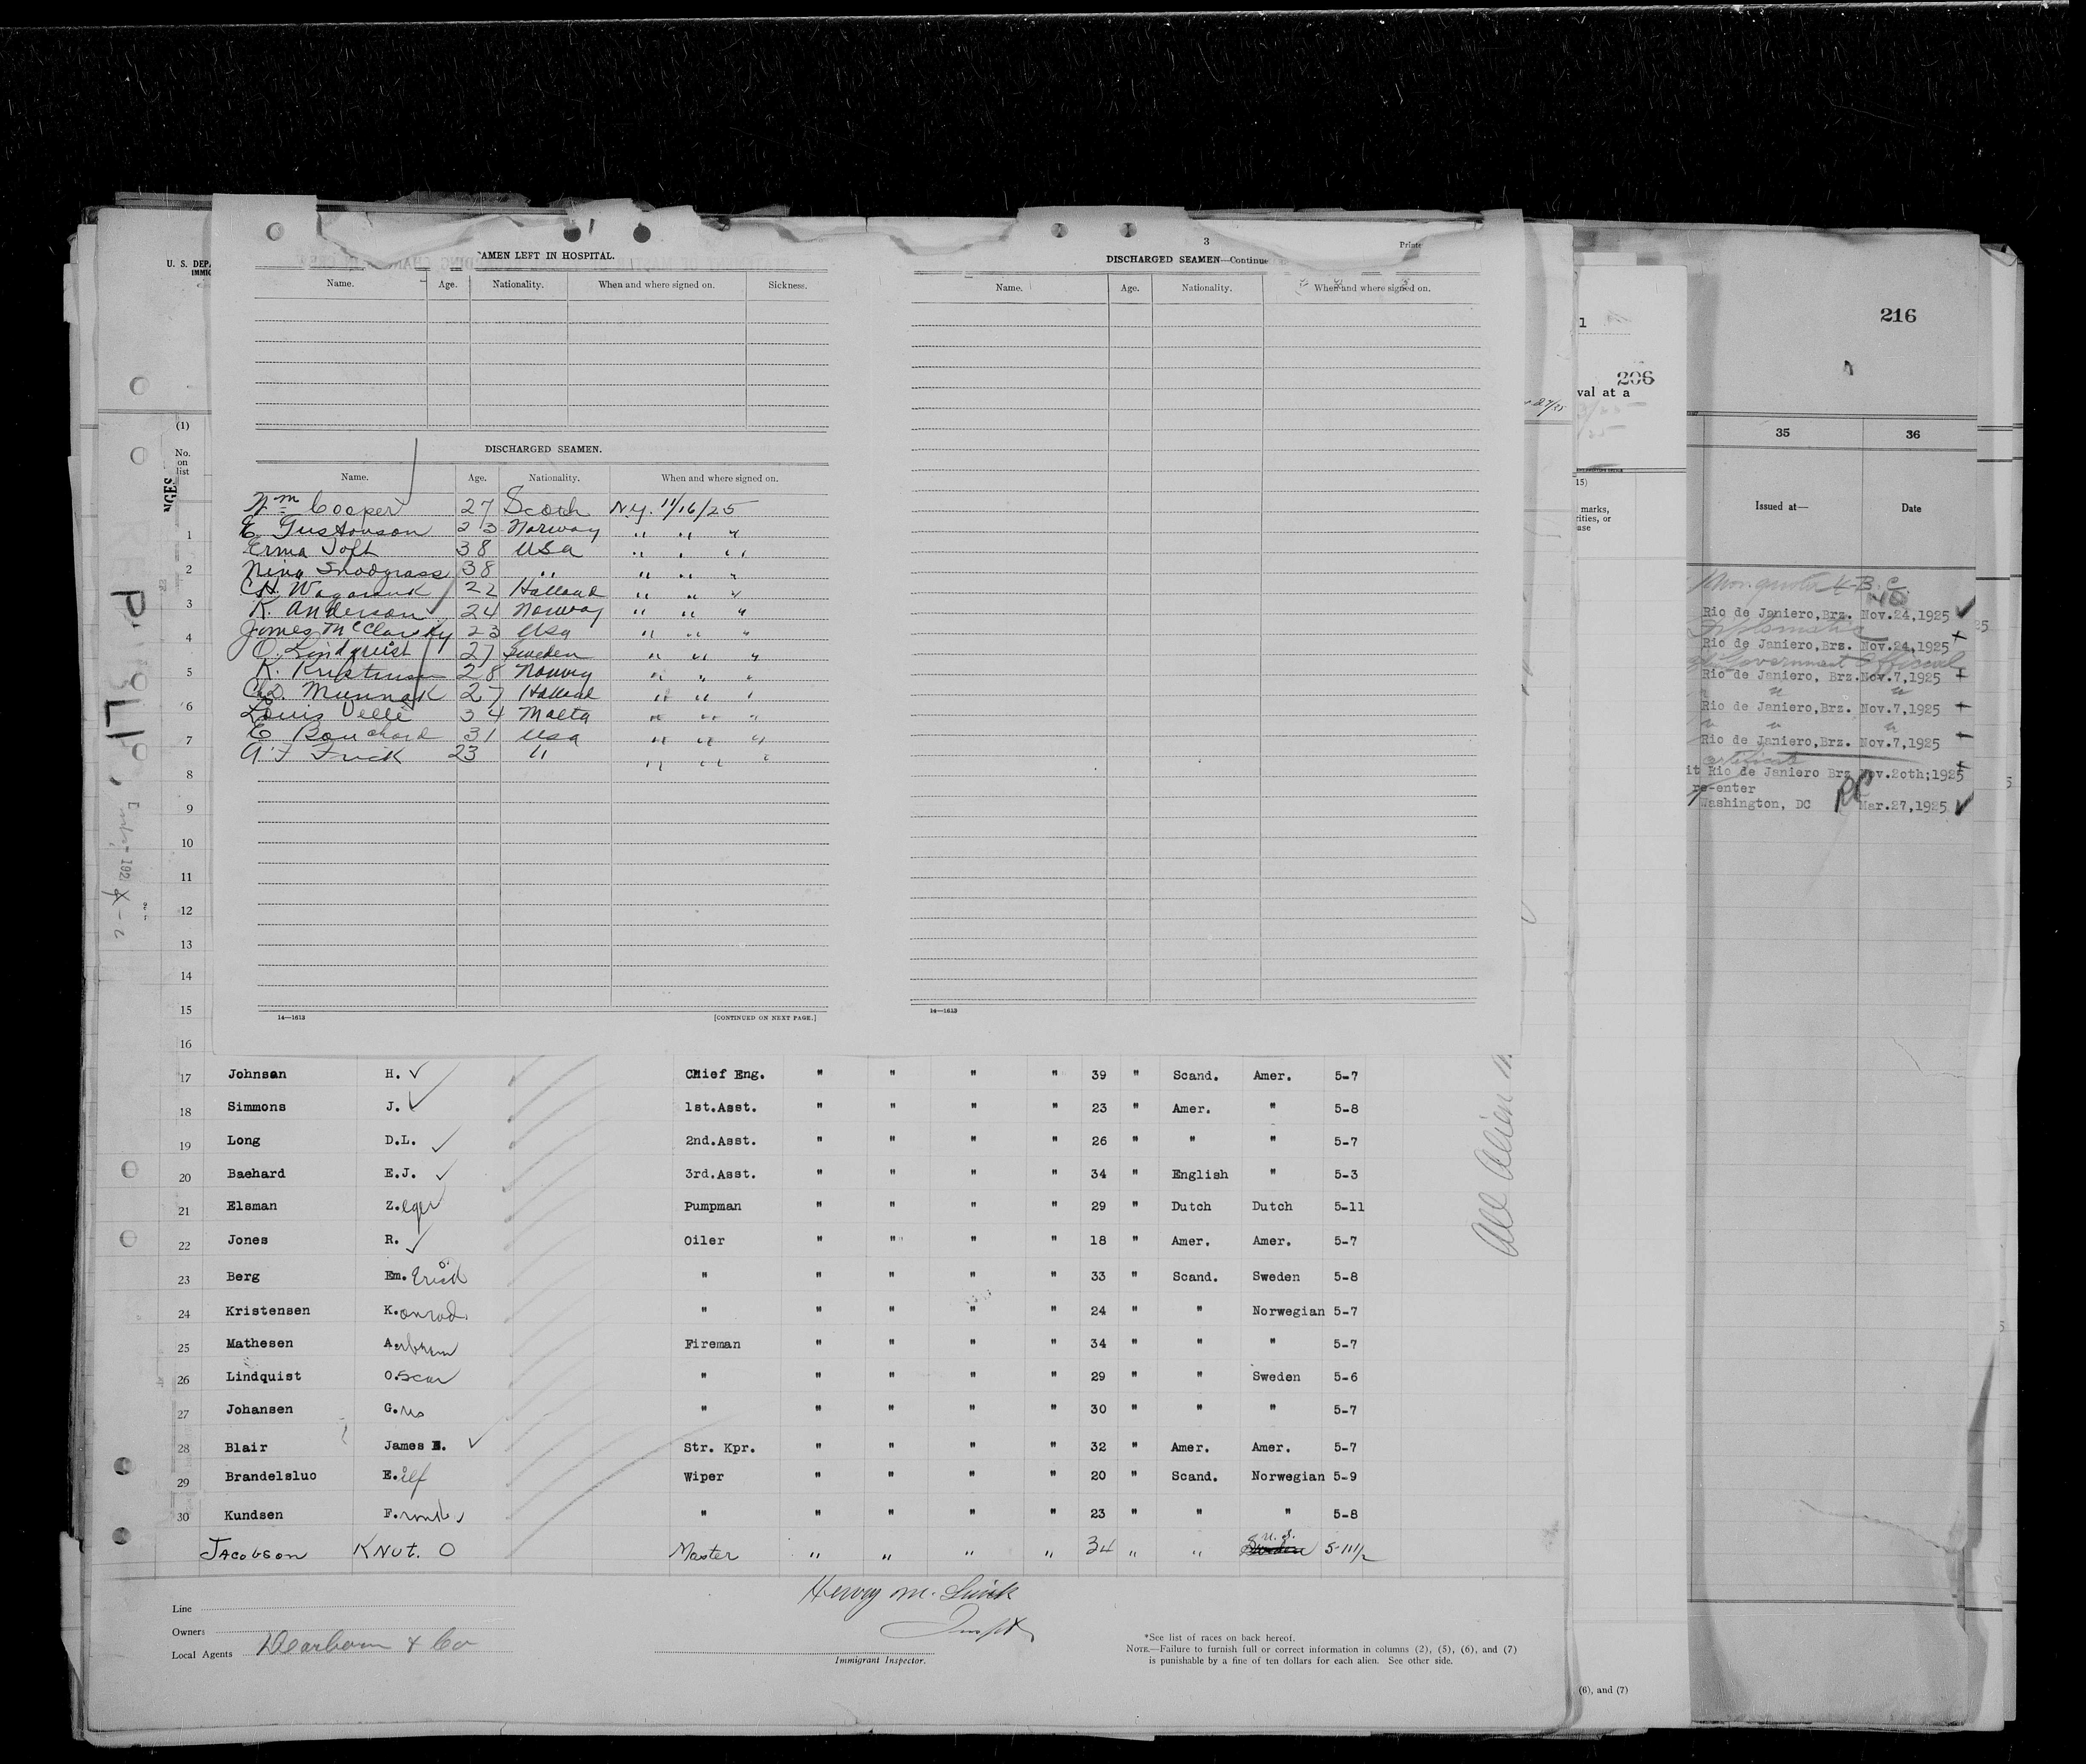 AMEN LEFT IN HOSPITAL.
Name. Age. Nationality. When and where signed on. Sickness.
DISCHARGED SEAMEN.
Name. Age. Nationality. When and where signed on.
Wm Cooper 27 Scotch N.Y. 11/16/25
E. Gustavson 23 Norway " " "
Erma Toft 38 USA " " "
Nina Snodgrass 38 " " " "
C.H. 22 Holland " " "
K. Anderson 24 Norway " " "
James 23 USA " " "
O. Lindquist 27 Sweden " " "
K. 28 Norway " " "
27 Holland " " "
Louis Velle 34 Malta " " "
E Bouchard 31 USA " " "
A F Frick 23 " " " "
14—1613 [CONTINUED ON NEXT PAGE.]
3
Printe
DISCHARGED SEAMEN—Continue
Name. Age. Nationality. When and where signed on.
14—1613
U. S. DEPA
IMMIG
(1)
No.
on
list
NGES
1
2
3
4
5
6
7
8
9
10
11
12
13
14
15
16
17 Johnsan H. Chief Eng. " " " " 39 " Scand. Amer. 5-7
18 Simmons J. 1st.Asst. " " " " 23 " Amer. " 5-8
19 Long D.L. 2nd.Asst. " " " " 26 " " " 5-7
20 Baehard E.J. 3rd.Asst. " " " " 34 " English " 5-3
21 Elsman Z.eger Pumpman " " " " 29 " Dutch Dutch 5-11
22 Jones R. Oiler " " " " 18 " Amer. Amer. 5-7
23 Berg Em. " " " " " 33 " Scand. Sweden 5-8
24 Kristensen K.onrad. " " " " " 24 " " Norwegian 5-7
25 Mathesen Fireman " " " " 34 " " " 5-7
26 Lindquist O.scar " " " " " 29 " " Sweden 5-6
27 Johansen G. " " " " " 30 " " " 5-7
28 Blair James E. Str. Kpr. " " " " 32 " Amer. Amer. 5-7
29 Brandelsluo E. Wiper " " " " 20 " Scand. Norwegian 5-9
30 Kundsen F. " " " " " 23 " " " 5-8
Jacobson Knut. O Master " " " " 34 " " U.S. 5-11½
All Alien
Line
Owners
Local Agents Dearborn & Co
Henry M.
Inspt
Immigrant Inspector.
*See list of races on back hereof.
NOTE.—Failure to furnish full or correct information in columns (2), (5), (6), and (7)
is punishable by a fine of ten dollars for each alien. See other side.
1
206
val at a
15)
marks,
rities, or
ase
(6), and (7)
216
35 36
Issued at— Date
Rio de Janiero,Brz. Nov.24,1925
Diplomatic
Rio de Janiero,Brz. Nov.24,1925
Government Official
Rio de Janiero, Brz. Nov.7,1925
" " "
Rio de Janiero,Brz. Nov.7,1925
" " "
Rio de Janiero,Brz. Nov.7,1925
it Rio de Janiero Brz Nov.2oth;1925
re-enter
Washington, DC Mar.27,1925